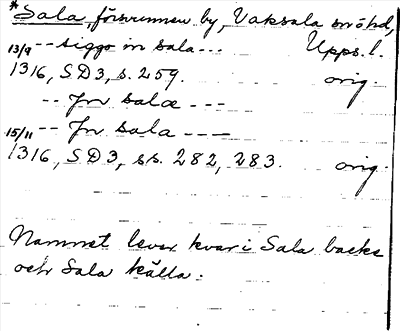 *Sala, försvunnen by, Vaksala snåhd,
13/9 -- siggo in sala... Upps. l.
1316, SD3, s. 259. orig.
-- Jn sala ---
15/11 -- Jn sala ---
1316, SD3, ss. 282, 283. orig.
Namnet lever kvar i Sala backe
och Sala källa.